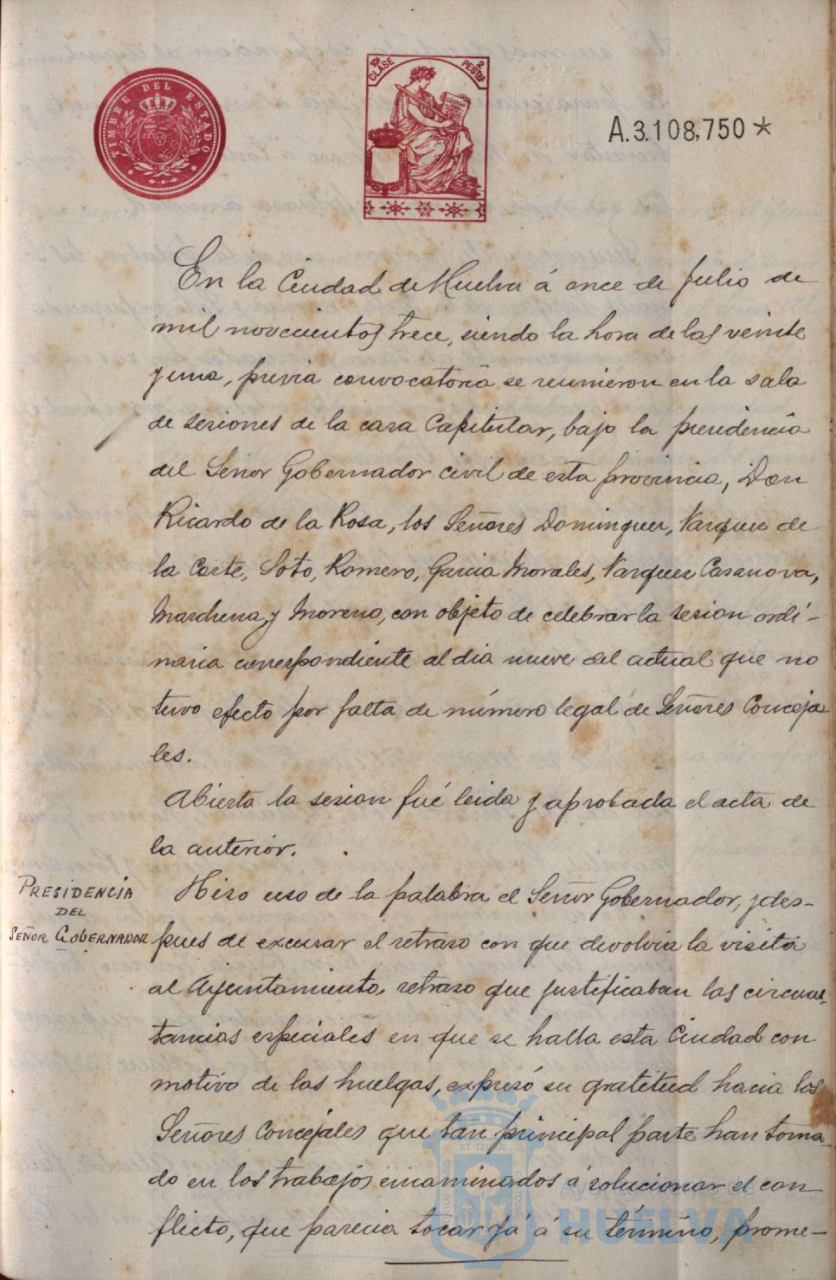 TIMBRE DEL ESTADO
10ª CLASE
2 PESTAS
A.3.108,750 *
En la Ciudad de Huelva á once de Julio de
mil novecientos trece, siendo la hora de las veinte
y una, previa convocatoria se reunieron en la sala
de sesiones de la casa Capitular, bajo la presidencia
del Señor Gobernador civil de esta provincia, Don
Ricardo de la Rosa, los Señores Dominguez, Vazquez de
la Corte, Soto, Romero, Garcia Morales, Vazquez Casanova,
Marchena y Moreno, con objeto de celebrar la sesion ordi-
naria correspondiente al dia nueve del actual que no
tuvo efecto por falta de número legal de Señores Conceja
les.
Abierta la sesion fué leida y aprobada el acta de
la anterior.
PRESIDENCÍA
DEL
SEÑOR GOBERNADOR
Hizo uso de la palabra el Señor Gobernador, y des-
pues de excusar el retraso con que devolvia la visita
al Ayuntamiento, retraso que justificaban las circuns-
tancias especiales en que se halla esta Ciudad con
motivo de las huelgas, expresó su gratitud hacia los
Señores Concejales que tan principal parte han toma-
do en los trabajos encaminados á solucionar el con
flicto, que parecia tocar yá á su término, prome-
HUELVA